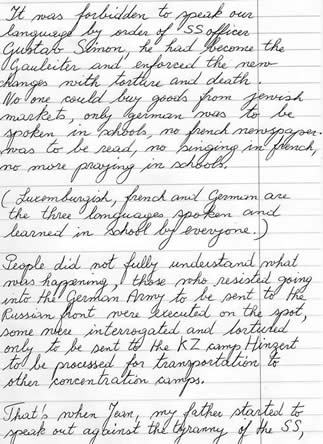 It was forbidden to speak our
language by order of SS officer
Gustav Simon, he had become the
Gauleiter and enforced the new
changes with torture and death.
No one could buy goods from jewish
markets, only german was to be
spoken in schools, no french newspaper
was to be read, no singing in french,
no more praying in schools.
(Luxemburgish, french and German are
the three languages spoken and
learned in school by everyone.)
People did not fully understand what
was happening, those who resisted going
into the German Army to be sent to the
Russian front were executed on the spot,
some were interrogated and tortured
only to be sent to the KZ camp Hinzert
to be processed for transportation to
other concentration camps.
That's when Jean, my father started to
speak out against the tyranny of the SS,